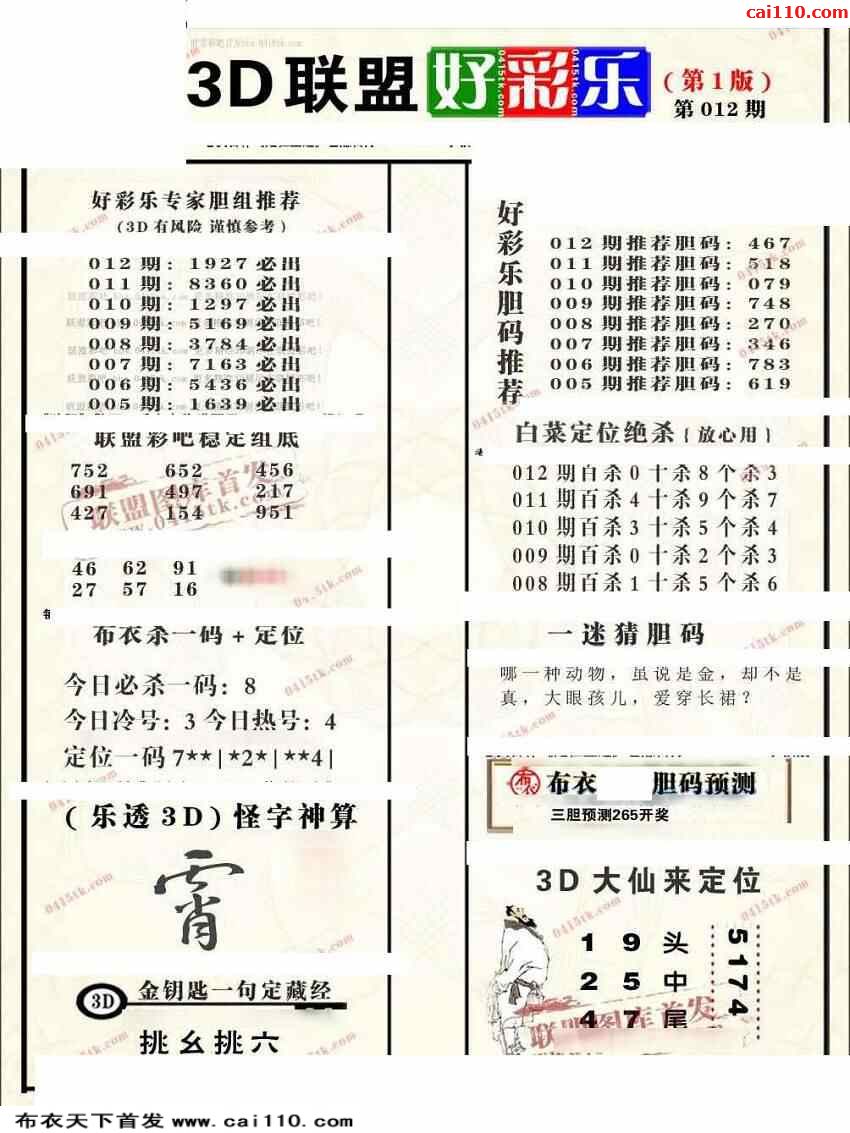 cai110.com
3D联盟好彩乐(第1版)
第012期
好彩乐专家胆组推荐
(3D有风险 谨慎参考)
012期: 1927必出
011期: 8360必出
010期: 1297必出
009期: 5169必出
008期: 3784必出
007期: 7163必出
006期: 5436必出
005期: 1639必出
联盟彩吧稳定组底
752 652 456
691 497 217
427 154 951
46 62 91
27 57 16
布衣杀一码+定位
今日必杀一码: 8
今日冷号: 3 今日热号: 4
定位一码 7**|*2*|**4|
(乐透3D)怪字神算
霄
3D 金钥匙一句定藏经
挑幺挑六
好彩乐胆码推荐
012期推荐胆码: 467
011期推荐胆码: 518
010期推荐胆码: 079
009期推荐胆码: 748
008期推荐胆码: 270
007期推荐胆码: 346
006期推荐胆码: 783
005期推荐胆码: 619
白菜定位绝杀{放心用}
012期百杀0十杀8个杀3
011期百杀4十杀9个杀7
010期百杀3十杀5个杀4
009期百杀0十杀2个杀3
008期百杀1十杀5个杀6
一迷猜胆码
哪一种动物，虽说是金，却不是
真，大眼孩儿，爱穿长裙？
布衣 布衣 胆码预测
三胆预测265开奖
3D大仙来定位
1 9 头
2 5 中
4 7 尾
5174
联盟图库首发
www.0415tk.com
联盟图库首发
0415tk.com
布衣天下首发 www.cai110.com